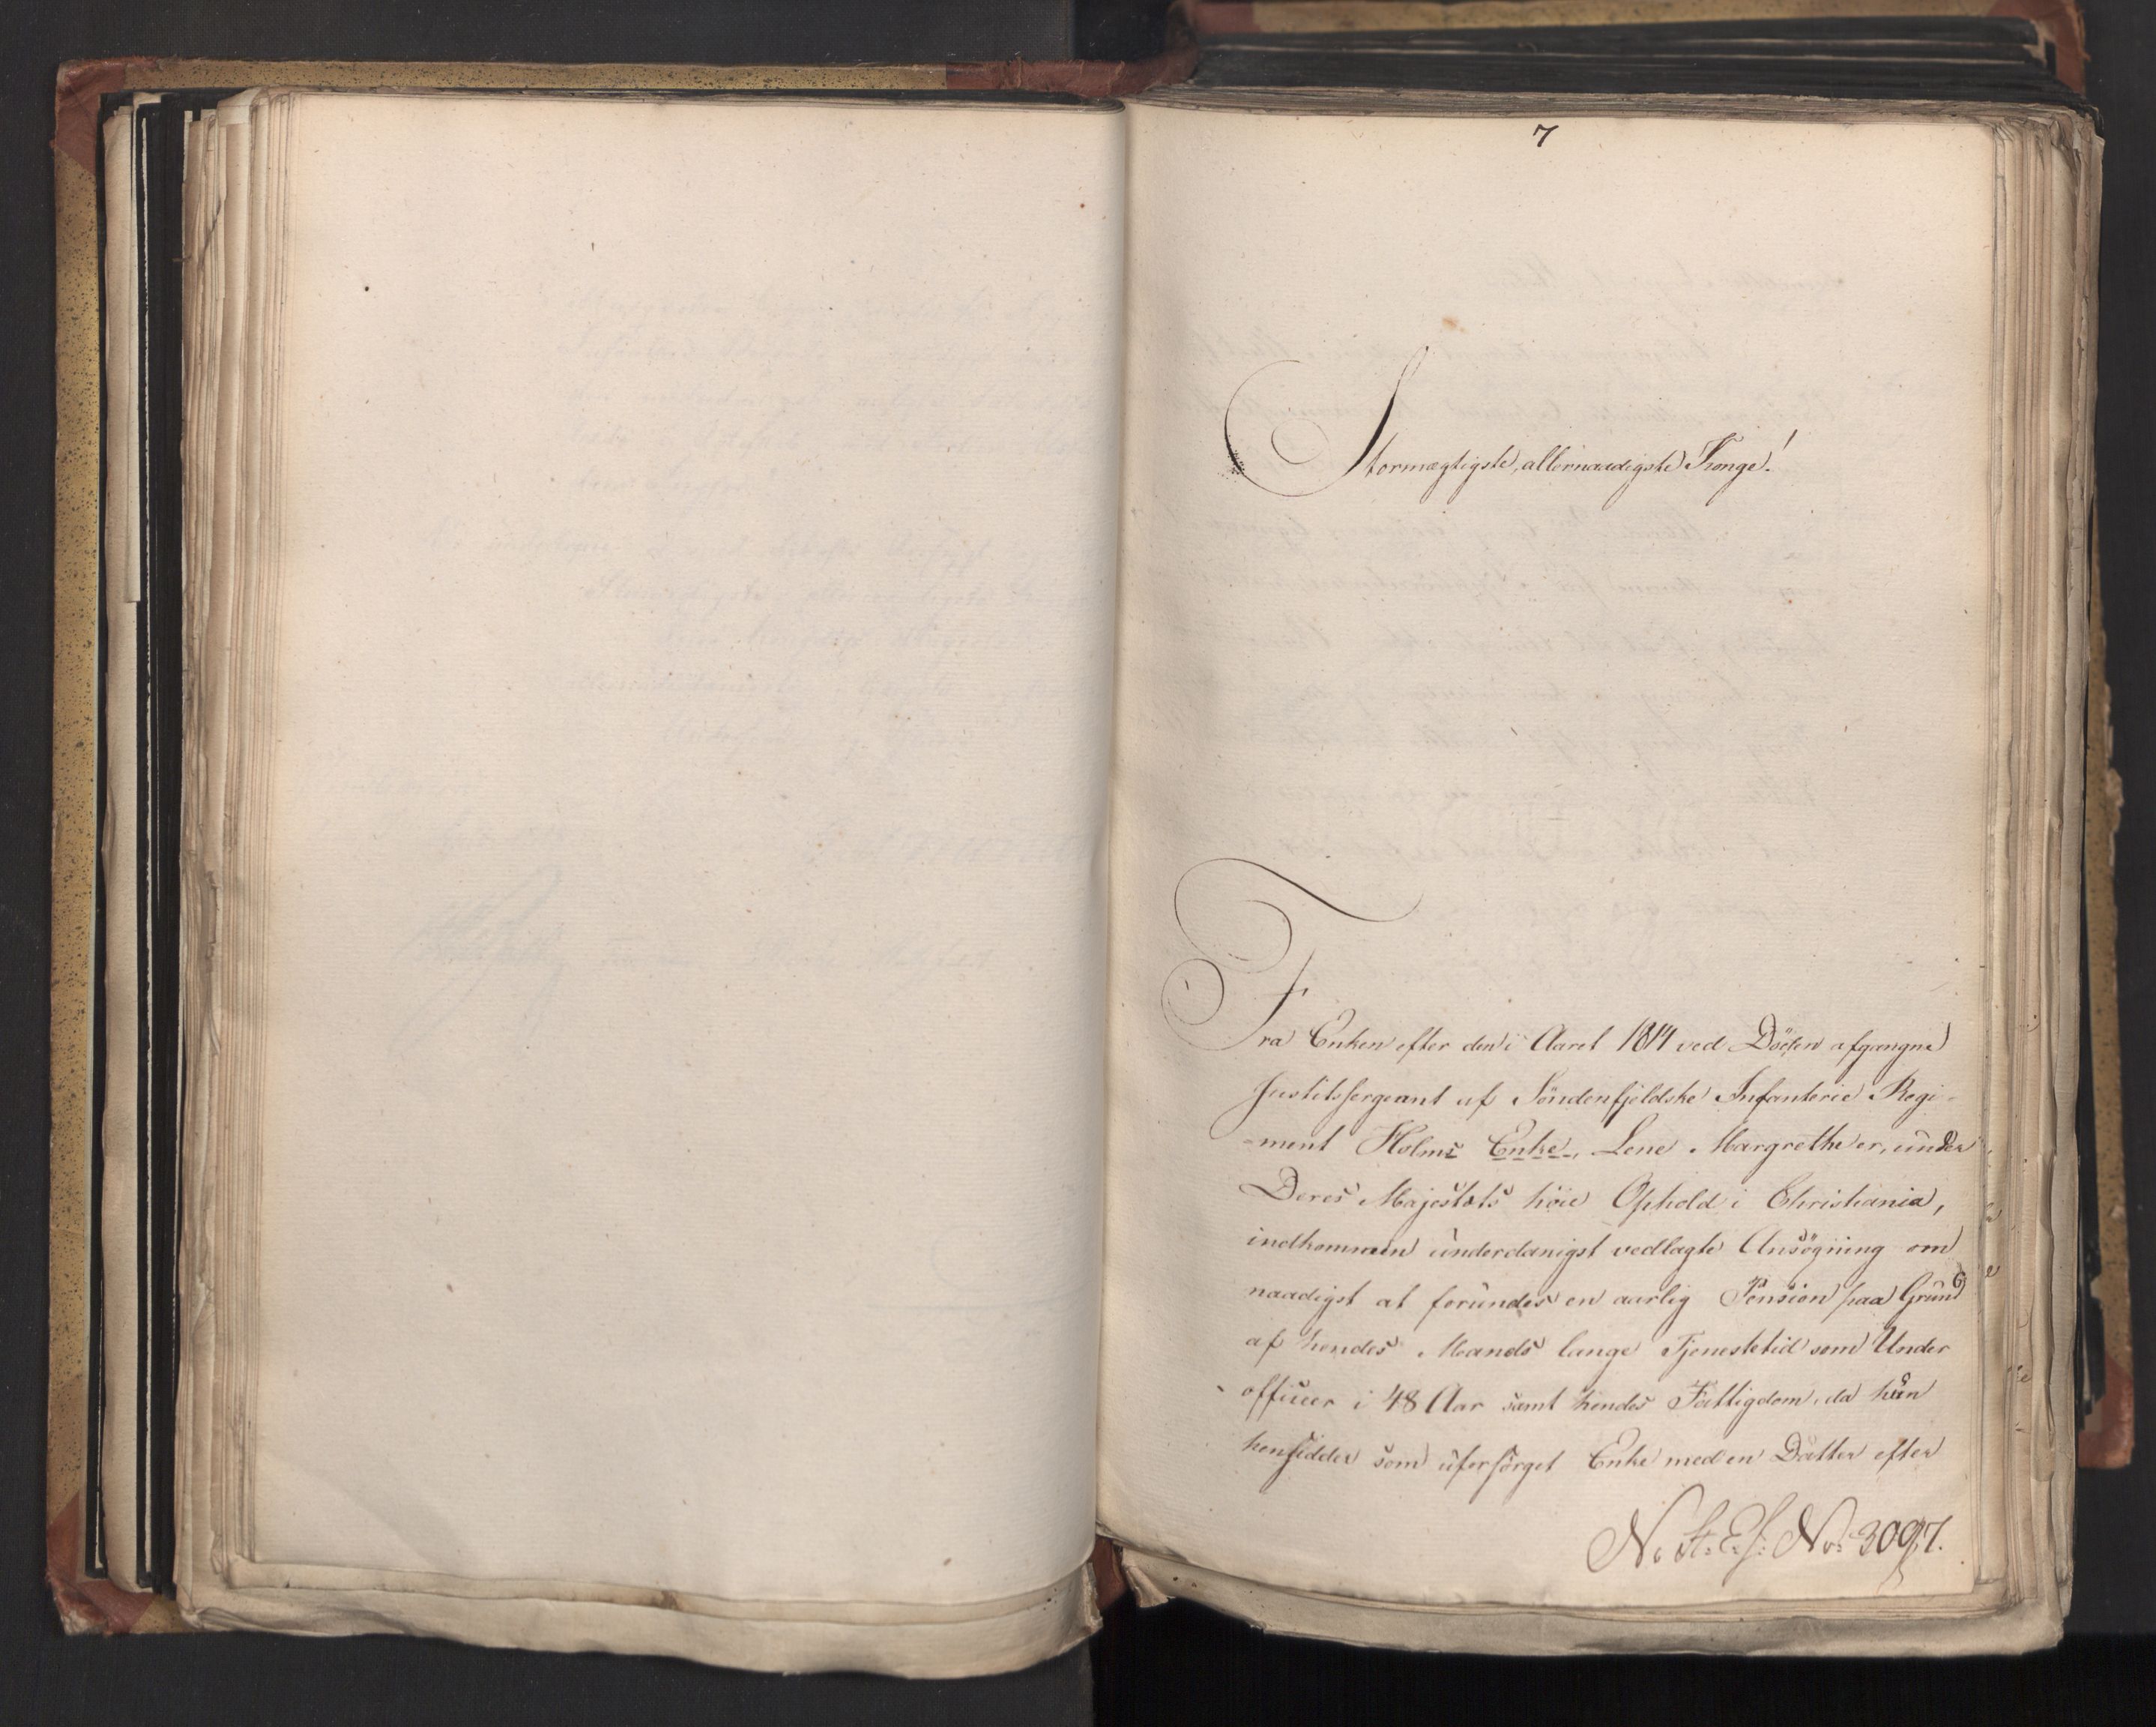 7
Stormægtigste, allernaadigste Konge!
Fra Enken efter den i Aaret 1814 ved Döden afgangne
Justitssergeant af Söndenfjeldske Infanterie Regi-
-ment Holms Enke, Lene Margrethe er, under
Deres Majestæts höie Ophold i Christiania,
indkommen underdanigst vedlagte Ansögning om
naadigst at forundes en aarlig Pension paa Grund
af hendes Mands lange Tjenestetid som Under
officeer i 48 Aar samt hendes Fattigdom, da hun
hensidder som uforsörget Enke med en Datter efter
N. St. E. J. No. 3097.